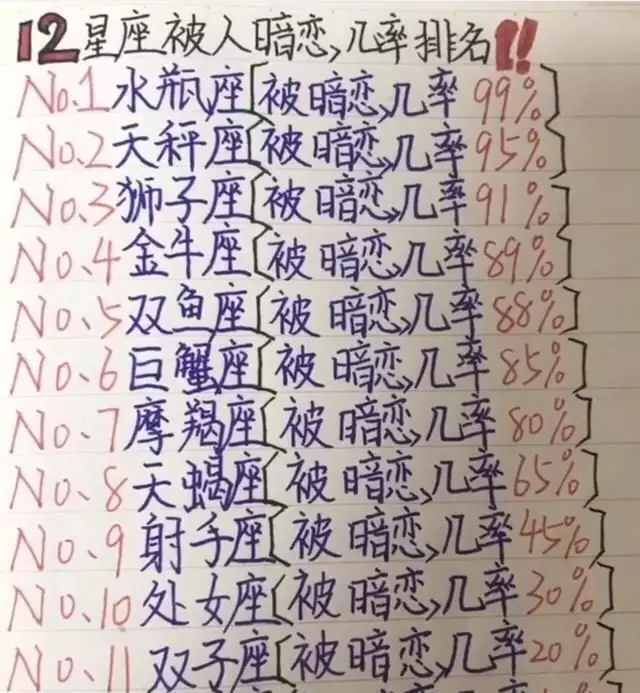 12星座被人暗恋,几率排名!!
No.1水瓶座[被暗恋,几率99%]
No.2天秤座[被暗恋,几率95%]
No.3狮子座[被暗恋,几率91%]
No、4金牛座[被暗恋,几率89%]
No、5双鱼座[被暗恋,几率88%]
No、6巨蟹座[被暗恋,几率85%]
No、7摩羯座[被暗恋,几率80%]
No、8天蝎座[被暗恋,几率65%]
No、9射手座[被暗恋,几率45%]
No、10处女座[被暗恋,几率30%]
No、11双子座[被暗恋,几率20%]